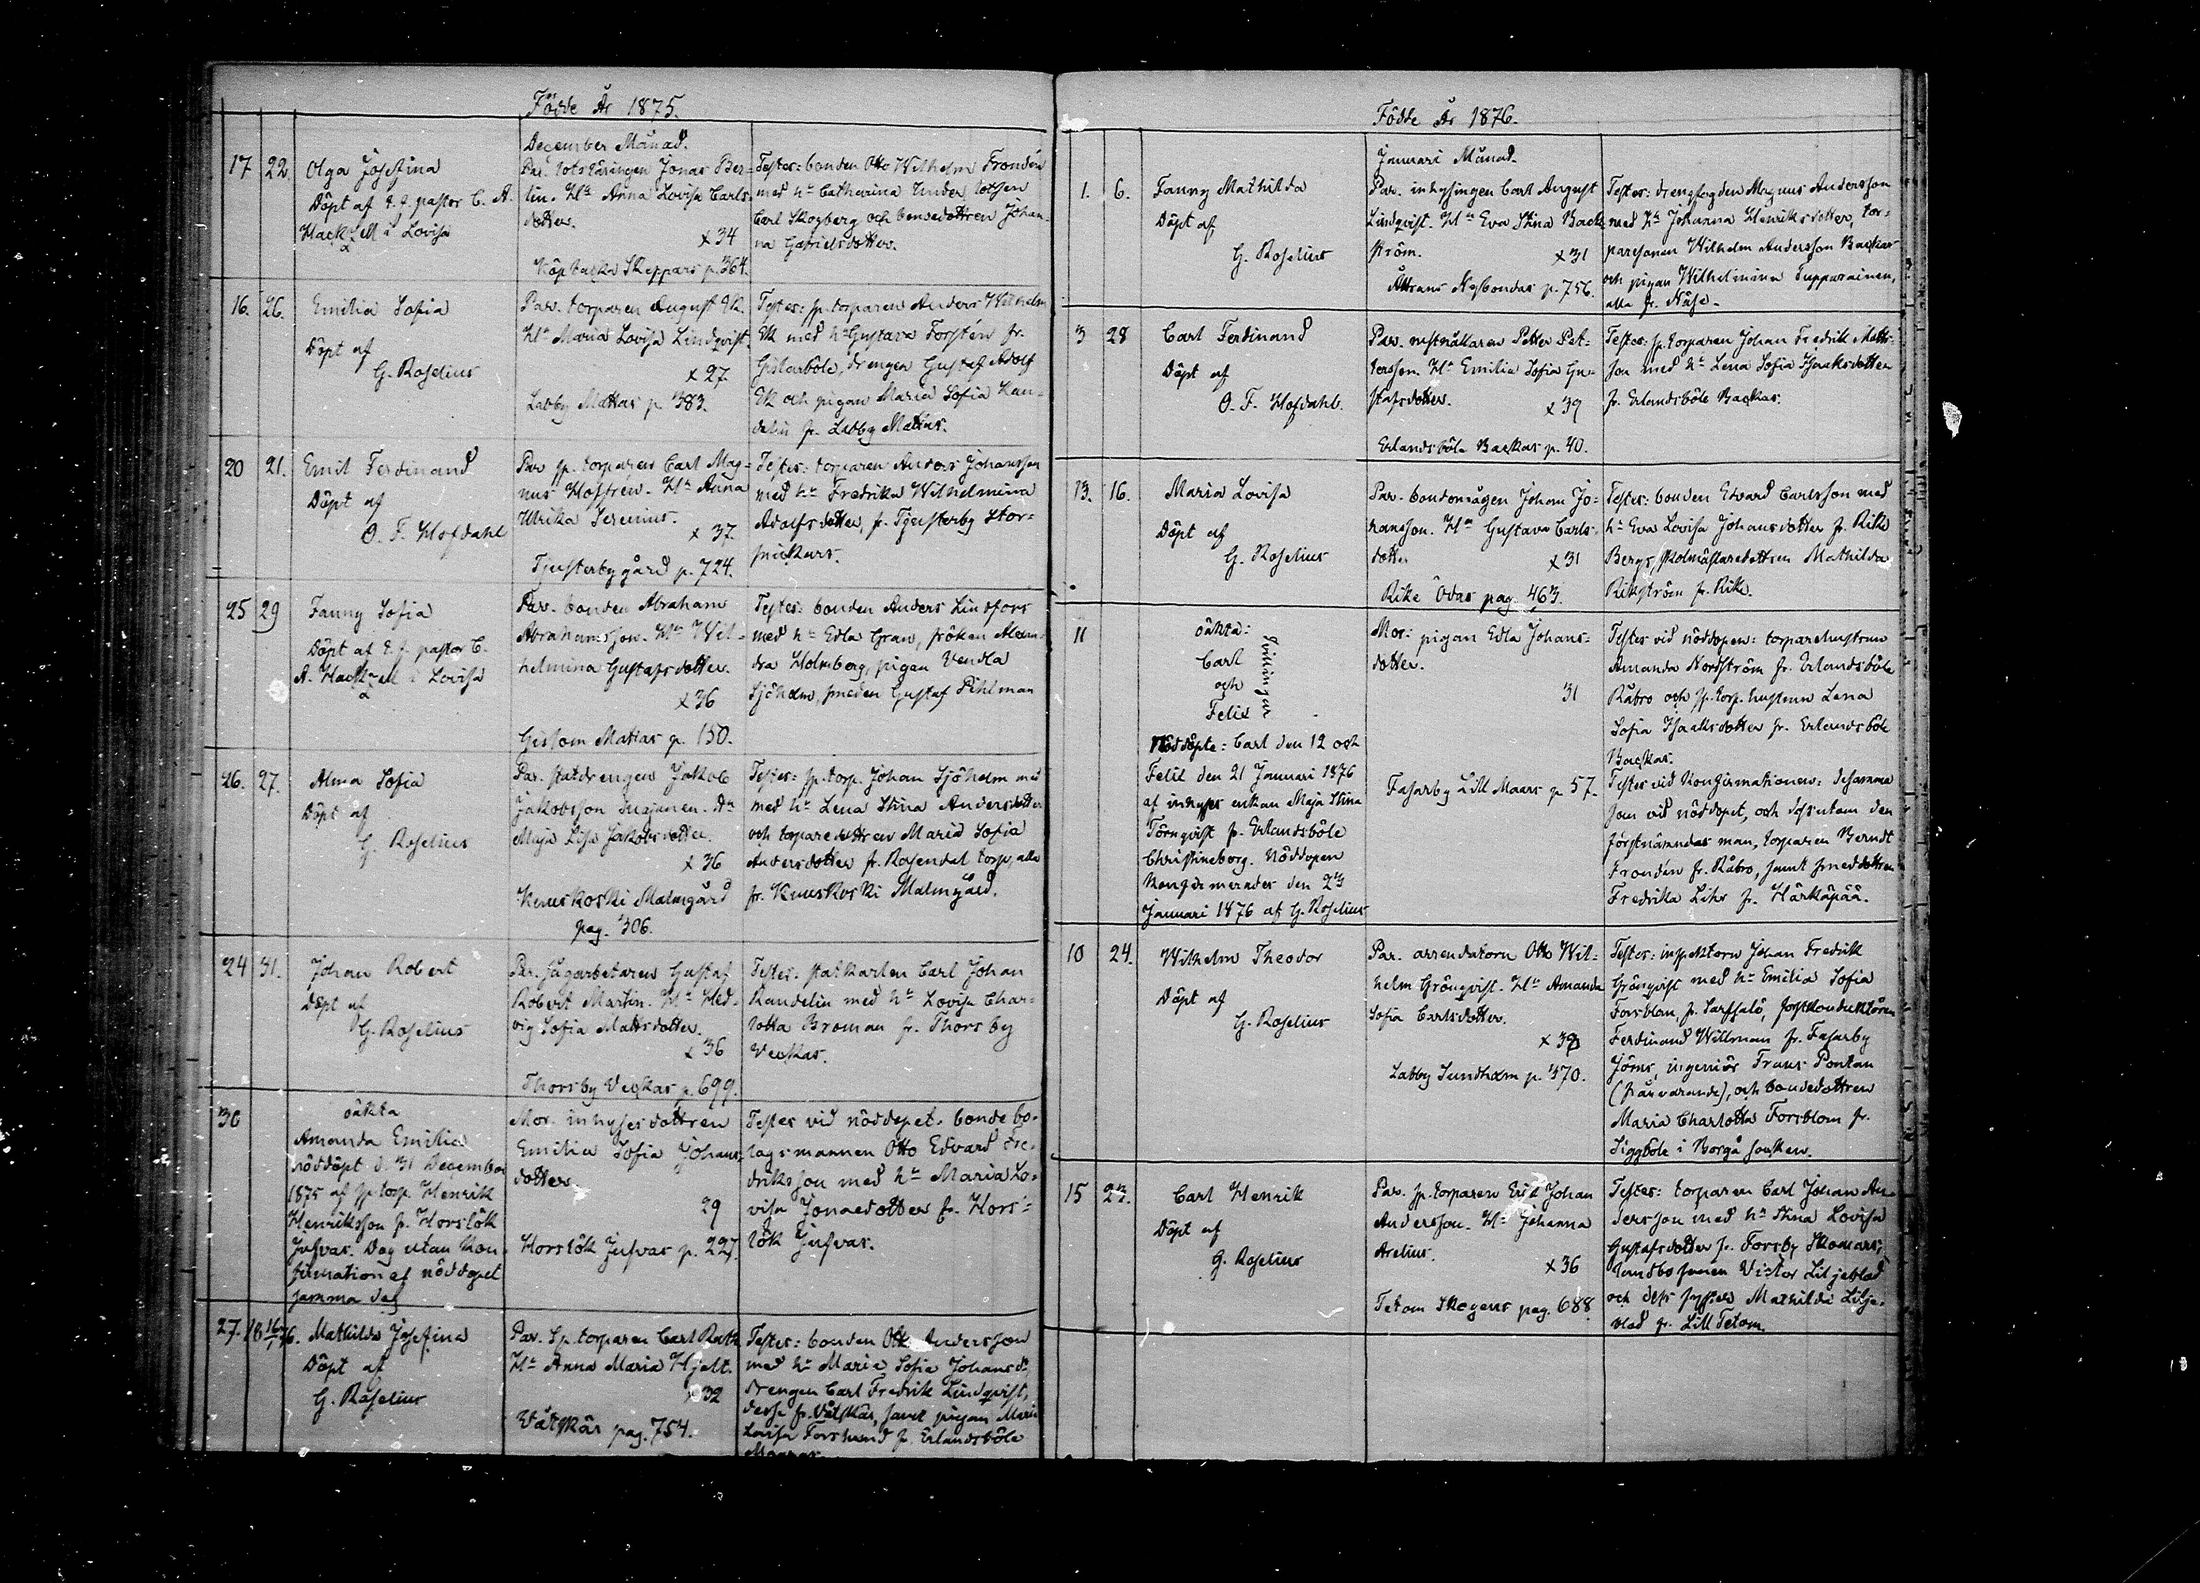 Födde År 1875.
December Månad.
17 22. Olga Josefina
Döpt af t. f. pastor C. A.
Hackzell i Lovisa
Par. lotslåringen Jonas Ber-
lin. Hu Anna Lovisa Carls-
dotter.
x 34
Köpbacka Skeppars p. 364.
Testes: bonden Otto Wilhelm Frondén
med hu Catharina Linder, lotsen
Carl Skogberg och bondedottren Johan-
na Gabrielsdotter.
16. 26. Emilia Sofia
Döpt af
G. Roselius
Par. torparen August Ek.
Hu Maria Lovisa Lindqvist.
x 27.
Labby Mattas p. 383.
Testes: sp. torparen Anders Wilhelm
Ek med hu Gustava Forstén fr.
Gislarböle, drengen Gustaf Adolf
Ek och pigan Maria Sofia Ran-
delin fr. Labby Mattas.
20 21. Emil Ferdinand
Döpt af
O. F. Hofdahl
Par sp. torparen Carl Mag-
nus Hoffrén. Hu Anna
Ulrika Serenius.
x 37.
Tjusterby gård p. 724.
Testes: torparen Anders Johansson
med hu Fredrika Wilhelmina
Adolfsdotter, fr. Tjusterby Stor-
smickars.
25 29 Fanny Sofia
Döpt af t. f. pastor C.
A. Hackzell i Lovisa
Par. bonden Abraham
Abrahamsson. Hu Wil-
helmina Gustafsdotter.
x 36
Gislom Mattas p. 150.
Testes: bonden Anders Lindfors
med hu Edla Gran, fröken Alexan-
dra Holmberg, pigan Vendla
Sjöholm, smeden Gustaf Pihlman
26. 27. Alma Sofia
Döpt af
G. Roselius
Par. statdrengen Jakob
Jakobsson
Maja Lisa Jakobsdotter.
x 36
Kuuskoski Malmgård
pag. 306.
Testes: sp. torp. Johan Sjöholm med
med hu Lena Stina Andersdotter
och torparedottren Maria Sofia
Andersdotter fr. Rosendal torp, alla
fr. Kuuskoski Malmgård.
24 31. Johan Robert
Döpt af
G. Roselius
Par. sågarbetaren Gustaf
Robert Martin. Hu Hed-
vig Sofia Mattsdotter.
x 36
Thorsby Veckas p. 699.
Testes: statkarlen Carl Johan
Randelin med hu Lovisa Char-
lotta Broman fr. Thorsby
Veckas.
30 oäkta
Amanda Emilia
nöddöpt d. 31 December
1875 af sp. torp. Henrik
Henriksson fr. Horslök
Jusvas. Dog utan kon-
firmation af nöddopet
samma dag
Mor. inhysesdottren
Emilia Sofia Johans-
dotter.
29
Horslök Jusvas p. 227.
Testes vid nöddopet. bonde bo-
lagsmannen Otto Edvard Fre-
driksson med hu Maria Lo-
visa Jonaedotter fr. Hors-
lök Jusvas.
27. Mathilda Josefina
Döpt af
G. Roselius
Par. Sp. torparen Carl
Hu Anna Maria Hjelt.
x 32
Våtskär pag. 754.
Testes: bonden Otto Andersson
med hu Maria Sofia Johansdr
drengen Carl Fredrik Lindqvist,
desse fr. Våtskär, samt pigan Maria
Lovisa Forslund fr. Erlandsböle
Födde År 1876.
Januari Månad.
1. 6. Fanny Mathilda
Döpt af
G. Roselius
Par. inhysingen Carl August
Lindqvist. Hu Eva Stina Back-
ström.
x 31
Nybondas p. 756.
Testes: drengfogden Magnus Andersson
med hu Johanna Henriksdotter, tor-
paresonen Wilhelm Andersson Backas
och pigan Wilhelmina Tupparainen,
alla fr. Näse.
3 28 Carl Ferdinand
Döpt af
O. F. Hofdahl.
Par. Petter Pet-
tersson. Hu Emilia Sofia Gu-
stafsdotter.
x 39
Erlandsböle Backas p. 40.
Testes: sp. torparen Johan Fredrik Matts-
son med hu Lena Sofia Isaaksdotter
fr. Erlandsböle Backas.
13. 16. Maria Lovisa
Döpt af
G. Roselius
Par. bondemågen Johan Jo-
hansson. Hu Gustava Carls-
dotter
x 31
Rike Odas pag. 463.
Testes: bonden Edvard Carlsson med
hu Eva Lovisa Johansdotter fr. Rike
Bergs, skolmästaredottren Mathilda
Rikström fr. Rike.
11 oäkta:
Carl
och
Felix
tvillingar
Nöddöpte: Carl den 12 och
Felix den 21 Januari 1876
af inhyses enkan Maja Stina
Törnqvist fr. Erlandsböle
Christineborg. Nöddopen
konfirmerades den 23
Januari 1876 af G. Roselius
Mor: pigan Edla Johans-
dotter.
31
Fasarby Lill Maars p. 57.
Testes vid nöddopen: torparehustrun
Amanda Nordström fr. Erlandsböle
Råbro och sp. torp. hustrun Lena
Sofia Isaaksdotter fr. Erlandsböle
Backas.
Testes vid konfirmationen: desamma
som vid nöddopet, och dessutom den
förstnämndas man, torparen Berndt
Frondén fr. Råbro, samt smeddottren
Fredrika Lihr fr. Härkäpää.
10 24. Wilhelm Theodor
Döpt af
G. Roselius
Par. arrendatorn Otto Wil-
helm Grönqvist. Hu Amanda
Sofia Carlsdotter.
x 39
Labby Sundholm p. 370.
Testes: inspektorn Johan Fredrik
Grönqvist med hu Emilia Sofia
Forsblom, fr. Sarfsalö, forstkonduktören
Ferdinand Willman fr. Fasarby
Jöms, ingeniör Frans Pontan
(frånvarande), och bondedottren
Maria Charlotta Forsblom fr.
Siggböle i Borgå socken.
15 23. Carl Henrik
Döpt af
G. Roselius
Par. sp. torparen Erik Johan
Andersson. Hu Johanna
Arelius.
x 36
Tetom Skogens pag. 688.
Testes: torparen Carl Johan An-
dersson med hu Stina Lovisa
Gustafsdotter fr. Forsby Skomars;
landbosonen Victor Liljeblad
och dess syster Mathilda Lilje-
blad fr. Lill Tetom.